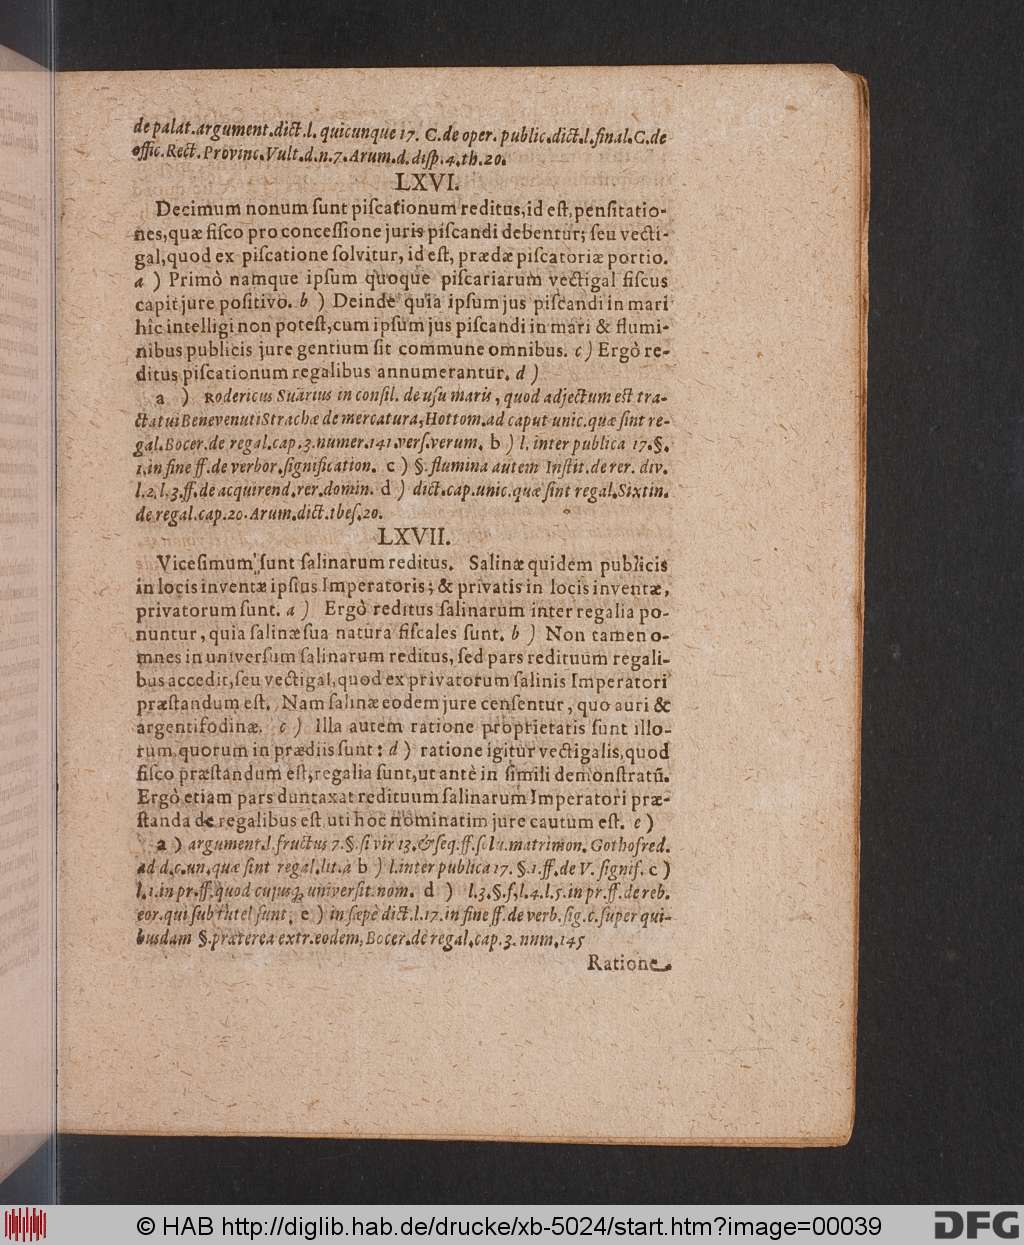 de palat.argument.dict.l. quicunque 17. C. de oper. public.dict.l.final.C.de
offic.Rect.Provinc.Vult.d.n.7.Arum.d.disp.4.th.20.
LXVI.
Decimum nonum ſunt piſcationum reditus,id eſt,penſitatio-
nes,quæ fiſco pro conceſſione juris piſcandi debentur; ſeu vecti-
gal,quod ex piſcatione ſolvitur, id eſt, prædæ piſcatoriæ portio.
a ) Primò namque ipſum quoque piſcariarum vectigal fiſcus
capit jure poſitivo. b ) Deinde quia ipſum jus piſcandi in mari
hîc intelligi non poteſt,cum ipſum jus piſcandi in mari & flumi-
nibus publicis jure gentium ſit commune omnibus. c ) Ergò re-
ditus piſcationum regalibus annumerantur. d )
a ) Rodericus Suarius in conſil. de uſu maris, quod adjectum eſt tra-
ctatui Benevenuti Strachæ de mercatura, Hottom.ad caput unic.quæ ſint re-
gal.Bocer.de regal.cap.3.numer.141.verſ.verum. b ) l. inter publica 17.§.
1.in fine ff.de verbor.ſignification. c ) §. flumina autem Inſtit.de rer. div.
l.2.l.3.ff.de acquirend.rer.domin. d ) dict.cap.unic.quæ ſint regal.Sixtin.
de regal.cap.20.Arum.dict.theſ.20.
LXVII.
Viceſimum ſunt ſalinarum reditus. Salinæ quidem publicis
in locis inventæ ipſius Imperatoris; & privatis in locis inventæ,
privatorum ſunt. a ) Ergò reditus ſalinarum inter regalia po-
nuntur, quia ſalinæ ſua natura fiſcales ſunt. b ) Non tamen o-
mnes in univerſum ſalinarum reditus, ſed pars redituum regali-
bus accedit,ſeu vectigal,quod ex privatorum ſalinis Imperatori
præſtandum eſt. Nam ſalinæ eodem jure cenſentur, quo auri &
argentifodinæ. c ) Illa autem ratione proprietatis ſunt illo-
rum,quorum in prædiis ſunt: d ) ratione igitur vectigalis,quod
fiſco præſtandum eſt,regalia ſunt,ut antè in ſimili demonſtratũ.
Ergò etiam pars duntaxat redituum ſalinarum Imperatori præ-
ſtanda de regalibus eſt uti hoc nominatim jure cautum eſt. e )
a ) argument.l.fructus 7.§.ſi vir 13.&ſeq.ff.ſolu.matrimon. Gothofred.
ad d.c.un.quæ ſint regal.lit.a b ) l.inter publica 17. §.1.ff.de V. ſignif. c )
l.1.in pr.ff.quod cujusq; univerſit.nom. d ) l.3.§.f.l.4.l.5.in pr.ff.de reb.
eor.qui ſub tutel ſunt. e ) in ſæpè dict.l.17.in fine ff.de verb.ſig.c.ſuper qui-
busdam §.præterea extr.eodem, Bocer.de regal.cap.3. num.145
Ratione
© HAB http://diglib.hab.de/drucke/xb-5024/start.htm?image=00039
DFG